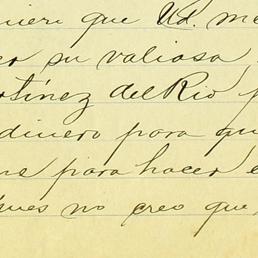 uiere que Ud. me
su valiosa
rtínez del Rio
dinero para qu
para hacer
ues no creo que